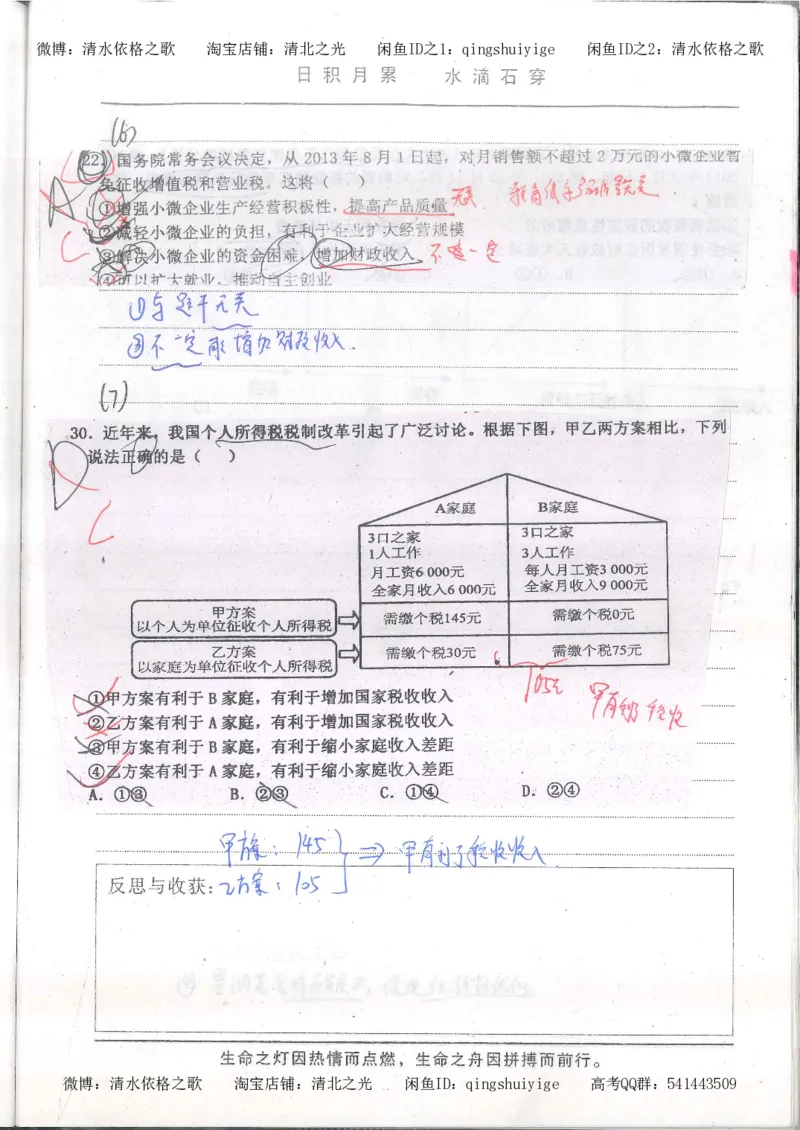 微博：清水依格之歌 淘宝店铺：清北之光 闲鱼ID之1：qingshuiyige 闲鱼ID之2：清水依格之歌
日积月累 水滴石穿
(6)
22. 国务院常务会议决定，从 2013 年 8 月 1 日起，对月销售额不超过 2 万元的小微企业暂
免征收增值税和营业税。这将（ ）
A
①增强小微企业生产经营积极性，提高产品质量 无关
②减轻小微企业的负担，有利于企业扩大经营规模
C
③解决小微企业的资金困难，增加财政收入 不一定
④可以扩大就业，推动自主创业
①与题干无关
③不一定能增加财政收入.
(7)
30．近年来，我国个人所得税税制改革引起了广泛讨论。根据下图，甲乙两方案相比，下列
说法正确的是（ ）
D
C
A家庭 B家庭
3口之家 3口之家
1人工作 3人工作
月工资6 000元 每人月工资3 000元
全家月收入6 000元 全家月收入9 000元
甲方案
以个人为单位征收个人所得税 需缴个税145元 需缴个税0元
乙方案
以家庭为单位征收个人所得税 需缴个税30元 需缴个税75元
105元
①甲方案有利于 B 家庭，有利于增加国家税收收入
②乙方案有利于 A 家庭，有利于增加国家税收收入
③甲方案有利于 B 家庭，有利于缩小家庭收入差距
④乙方案有利于 A 家庭，有利于缩小家庭收入差距
A．①③ B．②③ C．①④ D．②④
甲方案：145 ⇒ 甲有利于税收收入
反思与收获：乙方案：105
生命之灯因热情而点燃，生命之舟因拼搏而前行。
微博：清水依格之歌 淘宝店铺：清北之光 闲鱼ID：qingshuiyige 高考QQ群：541443509